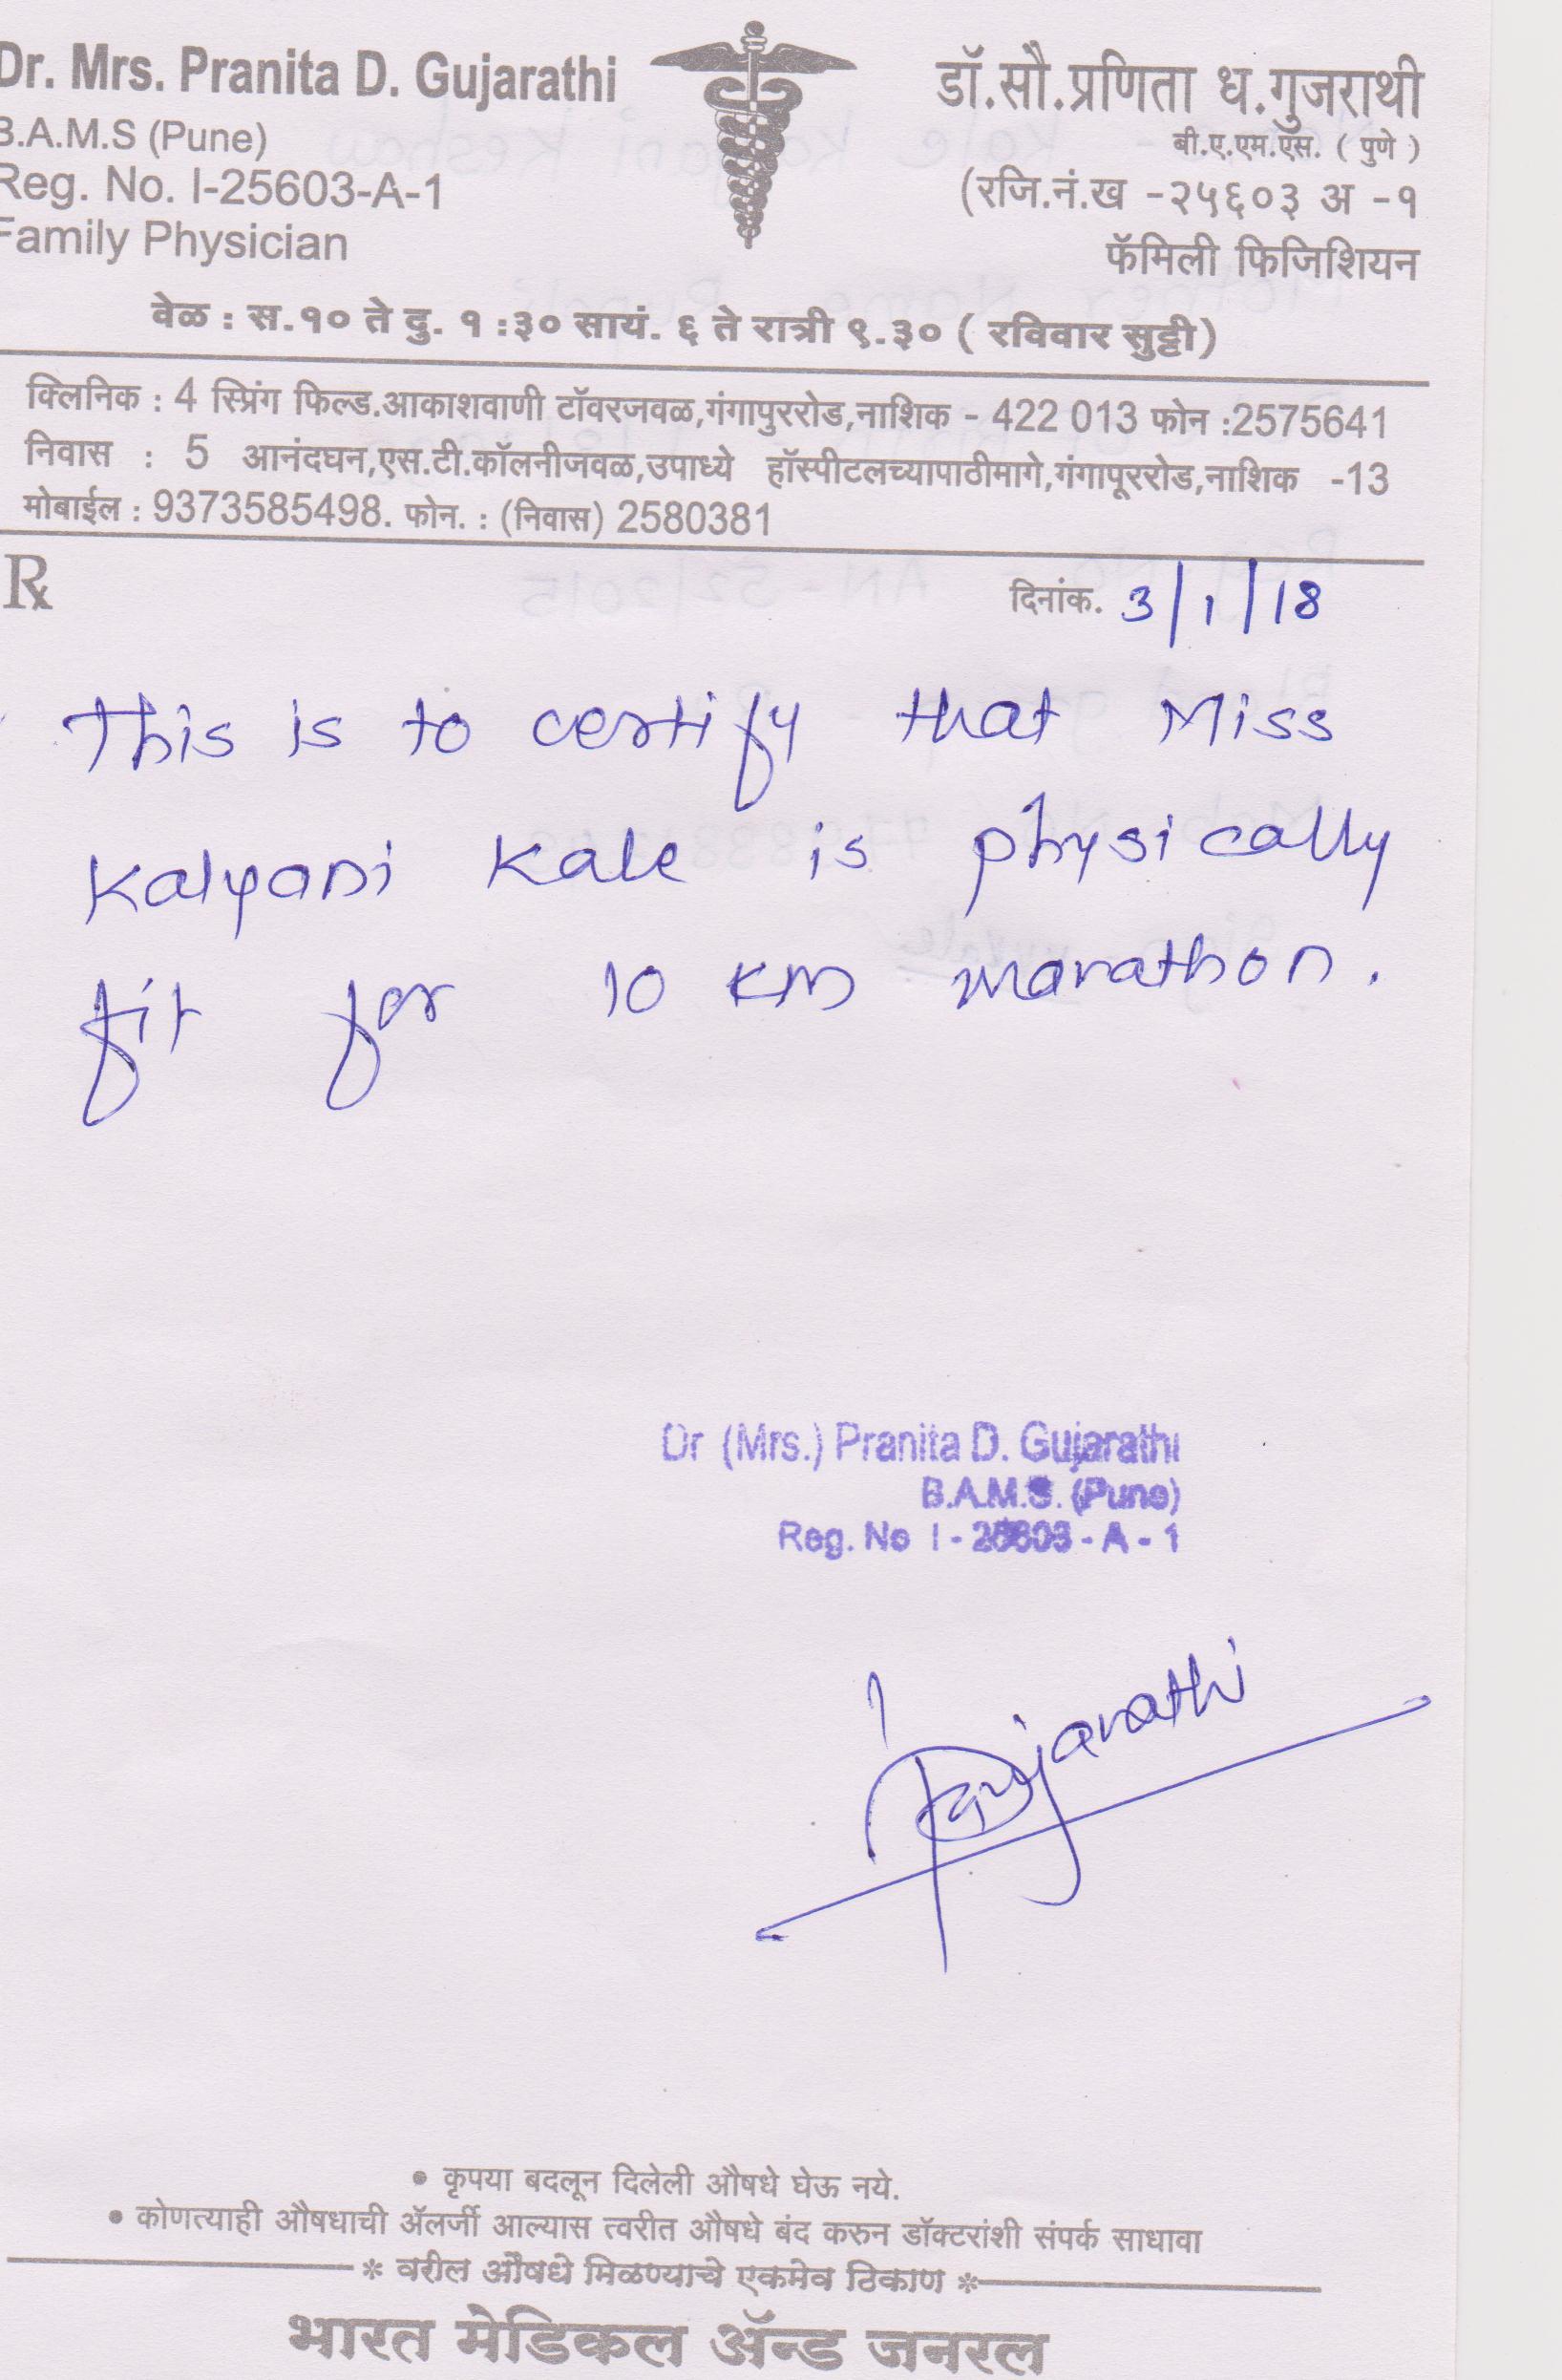 Dr. Mrs. Pranita D. Gujarathi
B.A.M.S (Pune)
Reg. No. I-25603-A-1
Family Physician
डॉ.सौ.प्रणिता ध.गुजराथी
बी.ए.एम.एस. ( पुणे )
(रजि.नं.ख -२५६०३ अ -१
फॅमिली फिजिशियन
वेळ : स.१० ते दु. १ :३० सायं. ६ ते रात्री ९.३० ( रविवार सुट्टी)
क्लिनिक : 4 स्प्रिंग फिल्ड.आकाशवाणी टॉवरजवळ,गंगापुररोड,नाशिक - 422 013 फोन :2575641
निवास : 5 आनंदघन,एस.टी.कॉलनीजवळ,उपाध्ये हॉस्पीटलच्यापाठीमागे,गंगापूररोड,नाशिक -13
मोबाईल : 9373585498. फोन. : (निवास) 2580381
℞
दिनांक. 3/1/18
This is to certify that Miss
Kalyani Kale is physically
fit for 10 KM marathon.
Dr (Mrs.) Pranita D. Gujarathi
B.A.M.S. (Pune)
Reg. No I - 25603 - A - 1
Gujarathi
• कृपया बदलून दिलेली औषधे घेऊ नये.
• कोणत्याही औषधाची ॲलर्जी आल्यास त्वरीत औषधे बंद करुन डॉक्टरांशी संपर्क साधावा
* वरील औषधे मिळण्याचे एकमेव ठिकाण *
भारत मेडिकल ॲन्ड जनरल